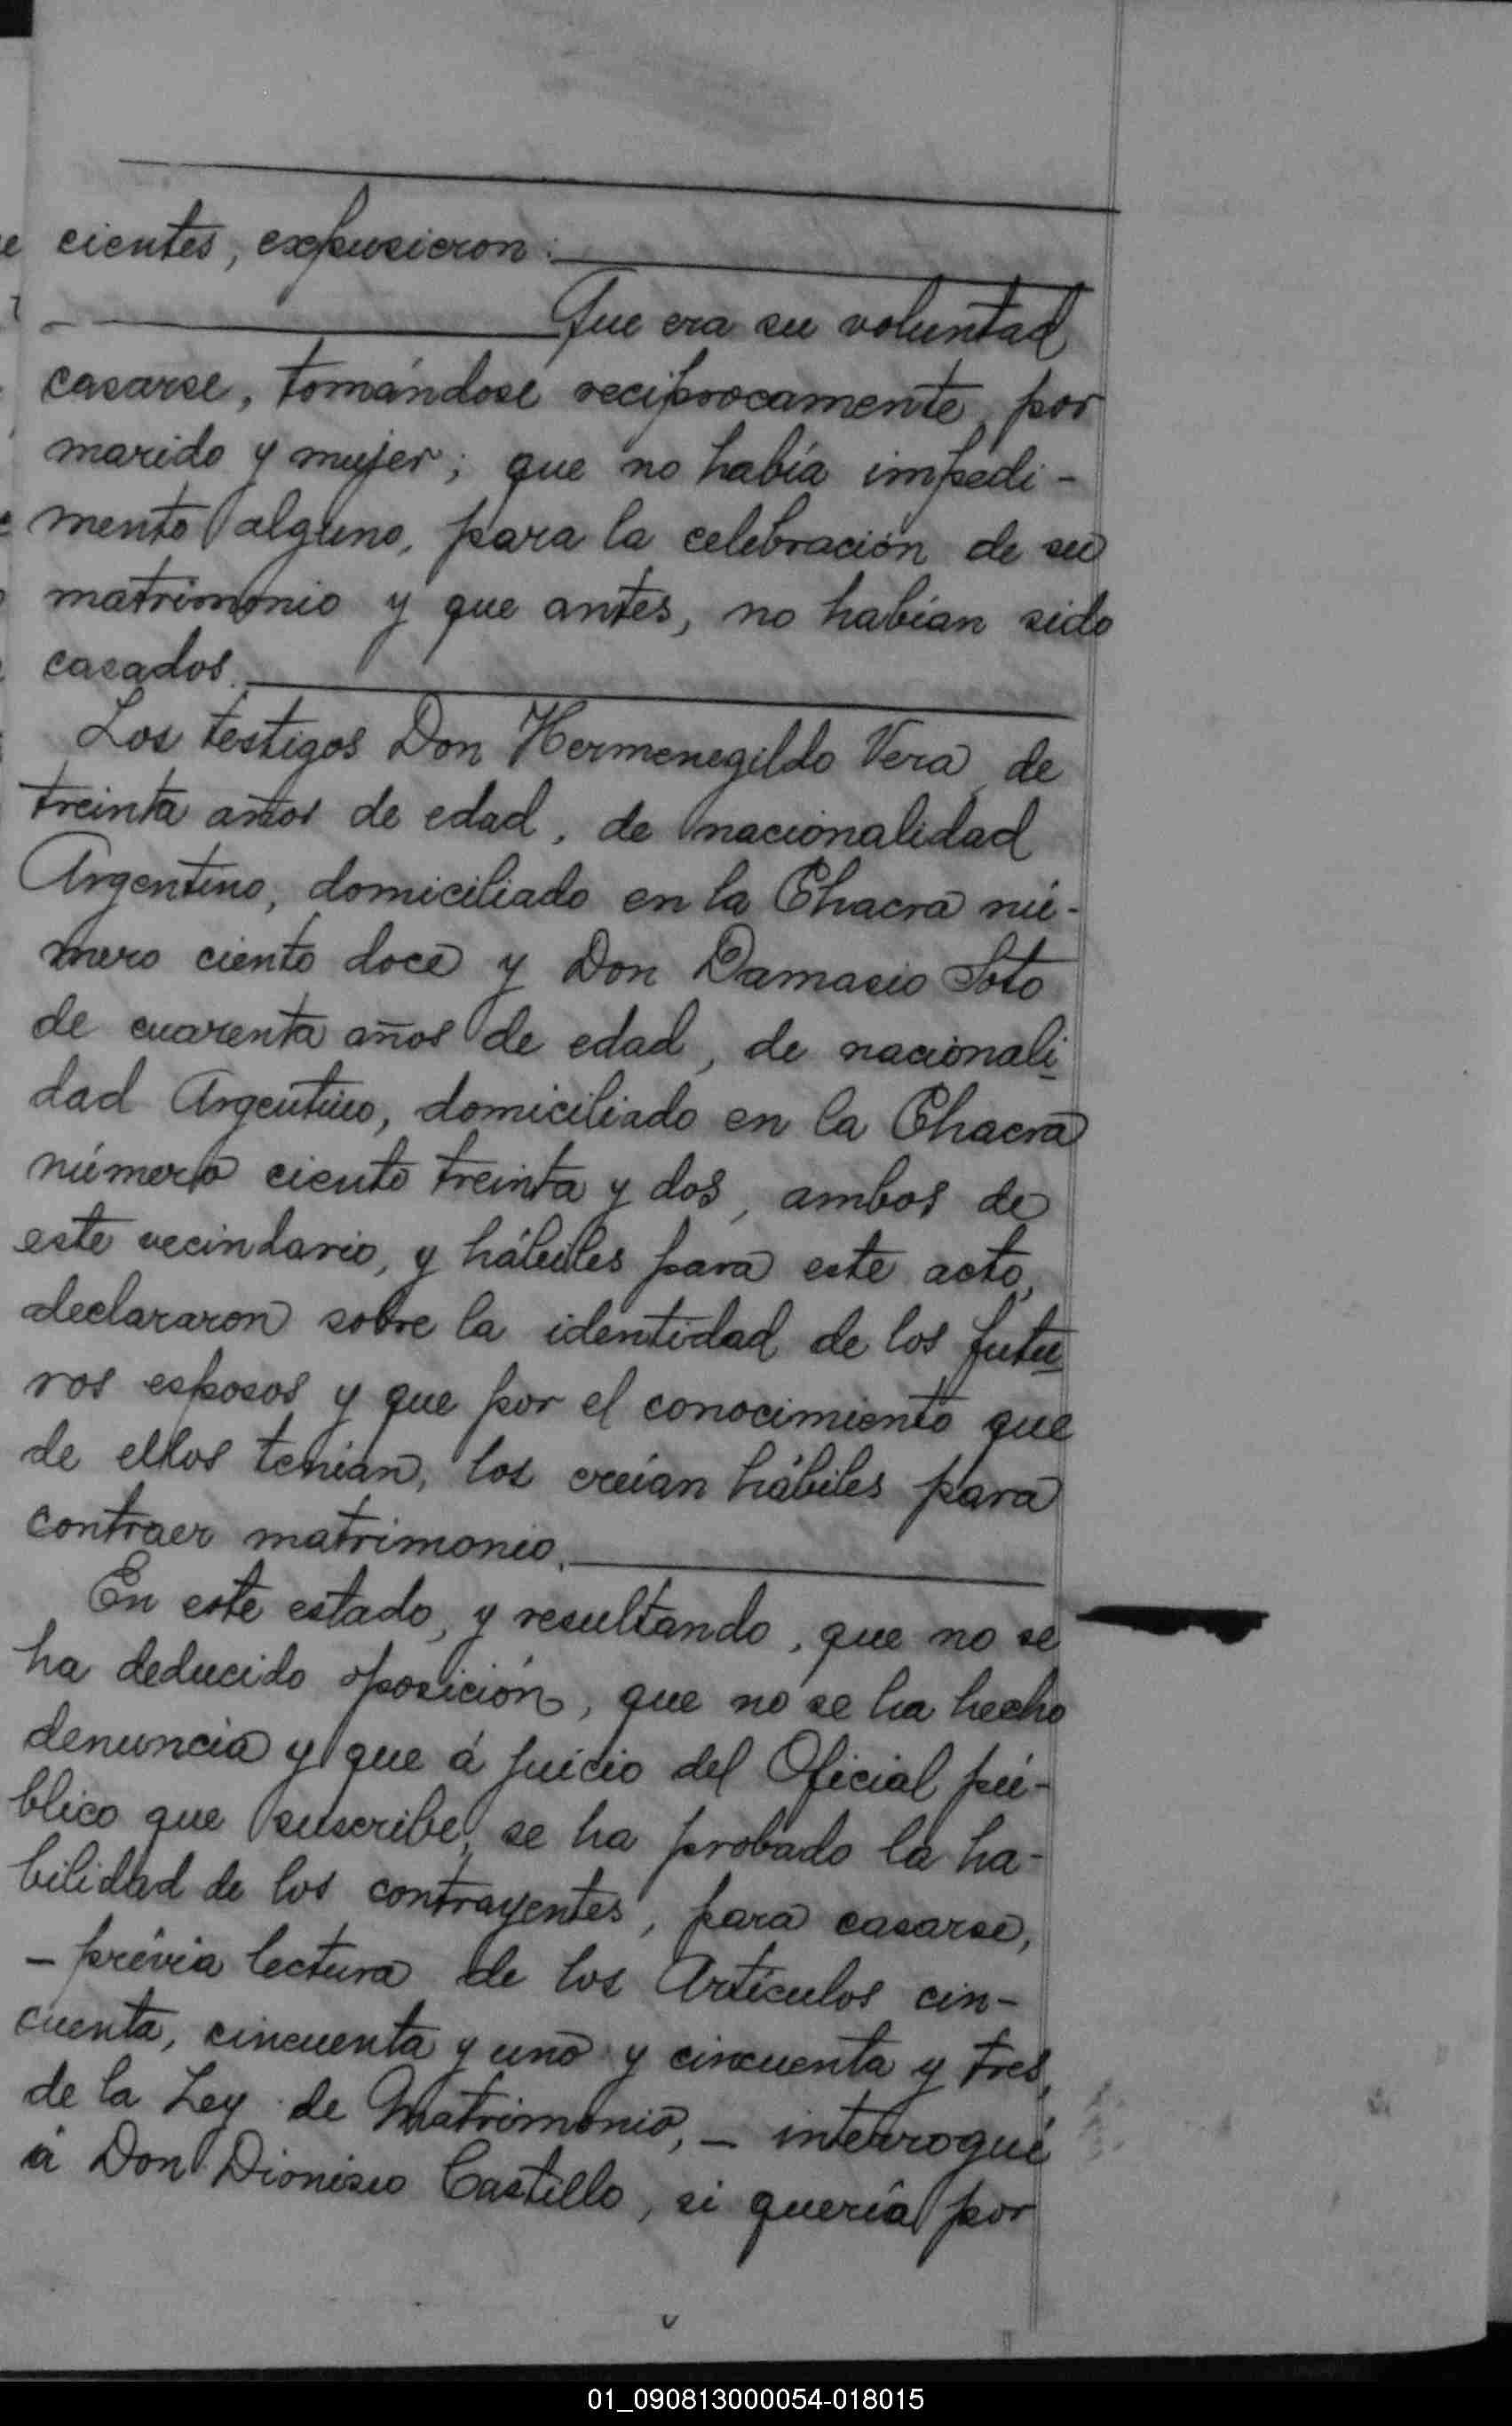 cientes, expusieron:
Que era su voluntad
casarse, tomándose reciprocamente, por
marido y mujer; que no había impedi-
mento alguno, para la celebración de su
matrimonio y que antes, no habían sido
casados.
Los testigos Don Hermenegildo Vera, de
treinta años de edad, de nacionalidad
Argentino, domiciliado en la Chacra nú-
mero ciento doce y Don Damasio Soto
de cuarenta años de edad, de nacionali-
dad Argentino, domiciliado en la Chacra
número ciento treinta y dos, ambos de
este vecindario, y hábiles para este acto,
declararon sobre la identidad de los futu-
ros esposos y que por el conocimiento que
de ellos tenían, los creían hábiles para
contraer matrimonio.
En este estado, y resultando, que no se
ha deducido oposición, que no se ha hecho
denuncia y que á juicio del Oficial pú-
blico que suscribe, se ha probado la ha-
bilidad de los contrayentes, para casarse,
- prévia lectura de los Artículos cin-
cuenta, cincuenta y uno y cincuenta y tres,
de la Ley de Matrimonio, - interrogué
á Don Dionisio Castillo, si quería por
01_090813000054-018015